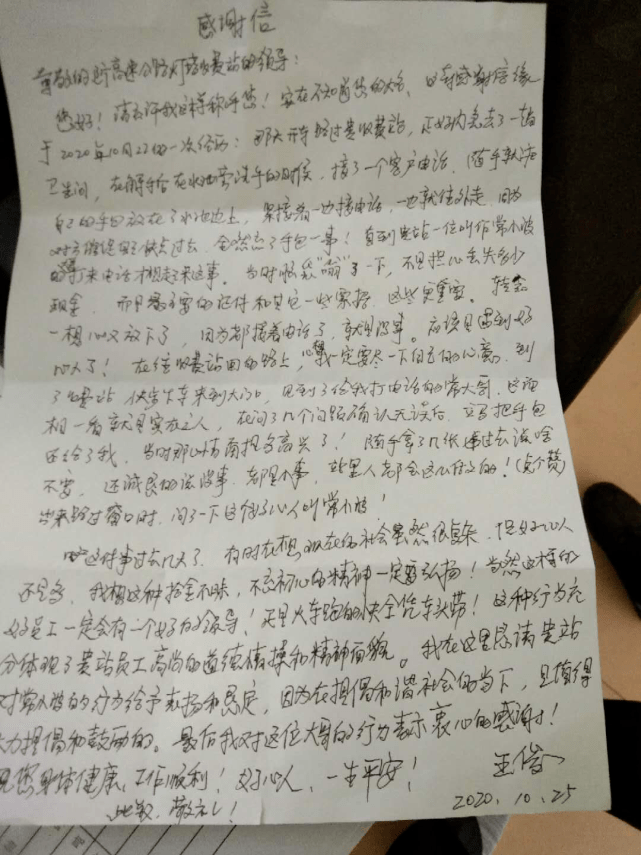 感谢信
尊敬的 高速公路 收费站的领导：
您好！请允许我这样称呼您！实在不知道您的大名，
于2020年10月22的一次经历：那天开车路过贵收费站，正好内急去了一趟
卫生间，在 在水池旁洗手的时候，接了一个客户电话，随手就把
自己的手包放在了水池边上，紧接着一边接电话，一边就往外走，因为
对方 快点过去，全然忘了手包一事！直到贵站一位叫作常小波
的 打来电话才想起来这事。当时 “嗡”了一下，不是担心丢失多少
现金，而是最主要的证件和其它一些票据，这些更重要。转念
一想心又放下了，因为都接着电话了，就没事。应该是遇到好
心人了！在往收费站回的路上， 我一定要尽一下自己的心意，到
了收费站 下车来到大门口，见到了给我打电话的常大哥，
相一看就是实在之人，在问了几个问题确认无误后，立马把手包
还给了我，当时那心情甭提多高兴了！随手拿了几张 过去说啥
不要，还诚恳的说没事，都是小事，站里人都会这么做的！（点个赞）
出来路过窗口时，问了一下这个好心人叫常小波！
这件事过去几天了，有时在想，现在的社会虽然很复杂，但好心人
还是多，我想这种拾金不昧，不忘初心的精神一定要弘扬！当然这样的
好员工一定会有一个好的领导！正是火车跑的快全凭车头带！这种行为充
分体现了贵站员工高尚的道德情操和精神面貌。我在这里恳请贵站
对常小波的行为给予表扬和肯定，因为在提倡和谐社会的当下，是值得
大力提倡和鼓励的。最后我对这位大哥的行为表示衷心的感谢！
祝您身体健康、工作顺利！好心人，一生平安！
此致，敬礼！
王俊
2020.10.25